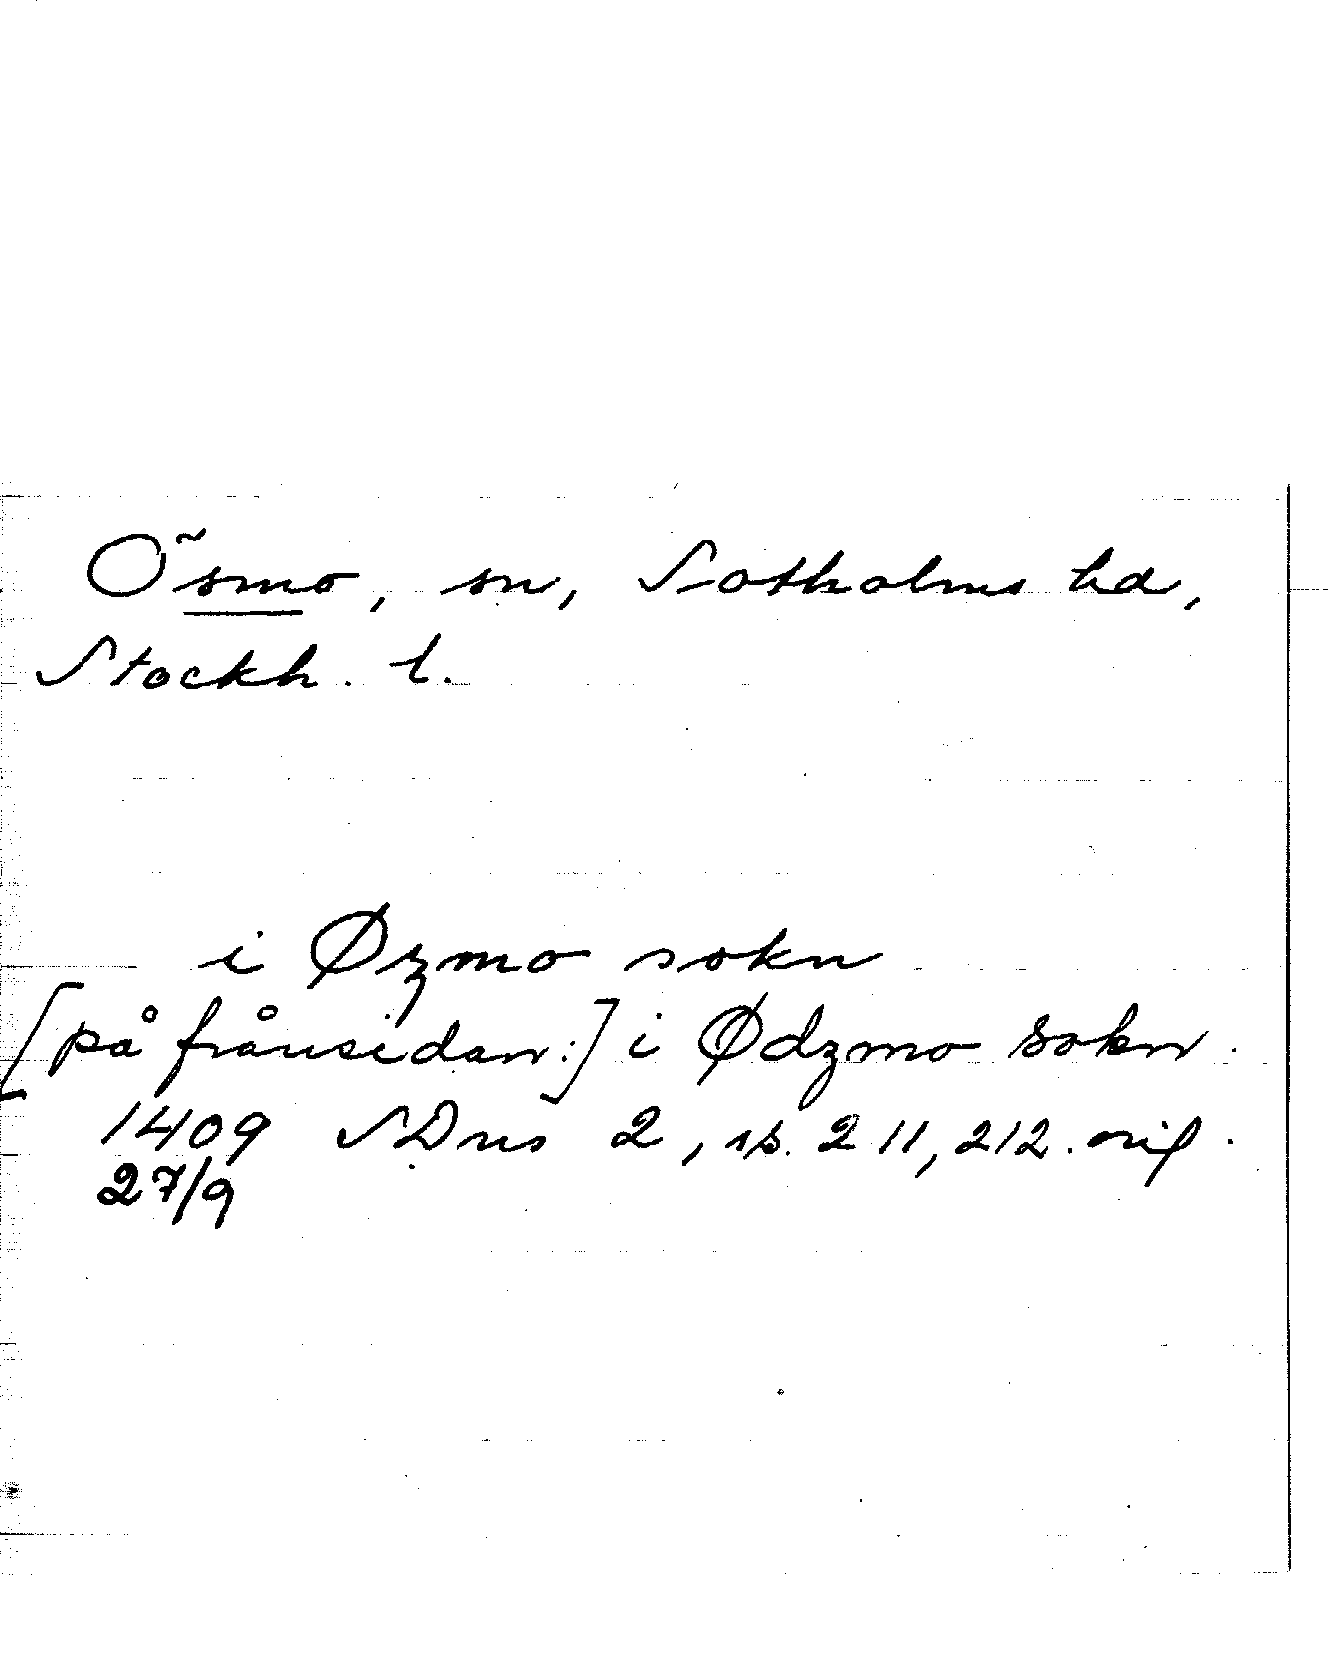 Ösmo, sn, Sotholms hd,
Stockh. l.
i Øzmo sokn
[på frånsidan:] i Ødzmo sokn.
1409 SDns 2, sp. 211, 212. orig.
27/9